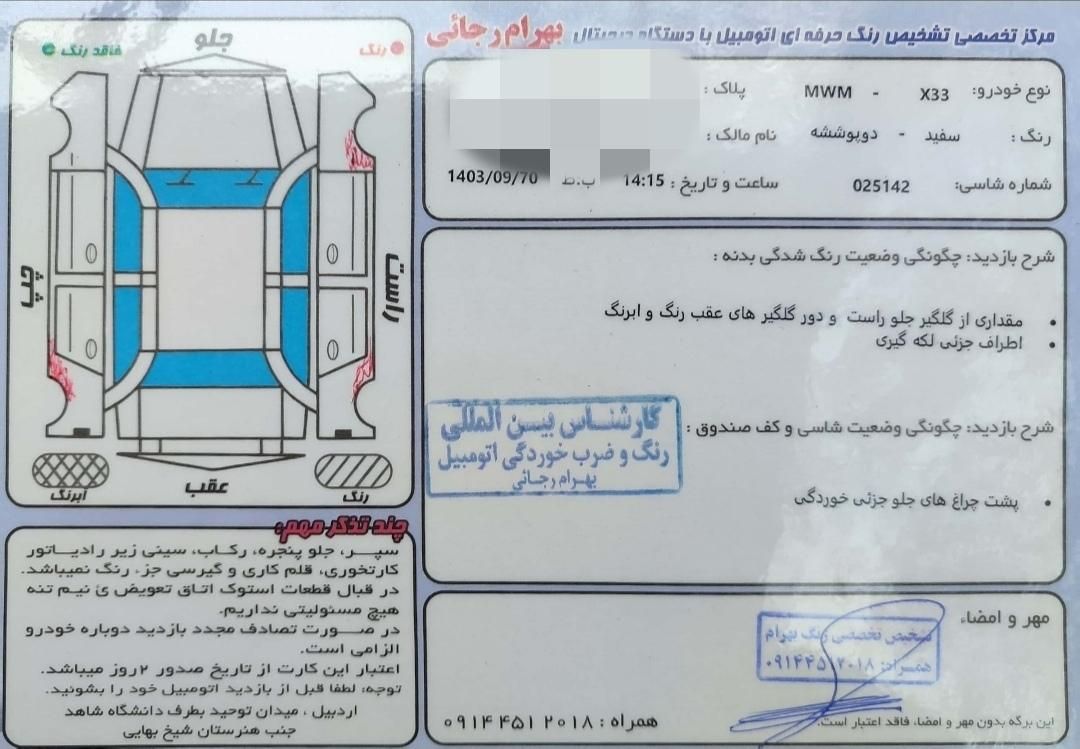 مرکز تخصصی تشخیص رنگ حرفه ای اتومبیل با دستگاه دیجیتال بهرام رجائی
نوع خودرو: X33 - MWM پلاک :
رنگ : سفید - دوپوششه نام مالک :
شماره شاسی: 025142 ساعت و تاریخ : 14:15 ب.ظ 1403/09/70
شرح بازدید: چگونگی وضعیت رنگ شدگی بدنه :
• مقداری از گلگیر جلو راست و دور گلگیر های عقب رنگ و ابرنگ
• اطراف جزئی لکه گیری
شرح بازدید: چگونگی وضعیت شاسی و کف صندوق :
• پشت چراغ های جلو جزئی خوردگی
کارشناس بین المللی
رنگ و ضرب خوردگی اتومبیل
بهرام رجائی
مهر و امضاء
تشخیص تخصصی رنگ بهرام
همراه: ۰۹۱۴۴۵۱۲۰۱۸
این برگه بدون مهر و امضاء، فاقد اعتبار است.
همراه : ۰۹۱۴ ۴۵۱ ۲۰۱۸
رنگ
جلو
فاقد رنگ
راست
چپ
رنگ
عقب
آبرنگ
چند تذکر مهم:
سپر، جلو پنجره، رکاب، سینی زیر رادیاتور
کارتخوری، قلم کاری و گیرسی جزء رنگ نمیباشد.
در قبال قطعات استوک اتاق تعویض ئ نیم تنه
هیچ مسئولیتی نداریم.
در صورت تصادف مجدد بازدید دوباره خودرو
الزامی است.
اعتبار این کارت از تاریخ صدور ۲ روز میباشد.
توجه: لطفا قبل از بازدید اتومبیل خود را بشوئید.
اردبیل ، میدان توحید بطرف دانشگاه شاهد
جنب هنرستان شیخ بهایی